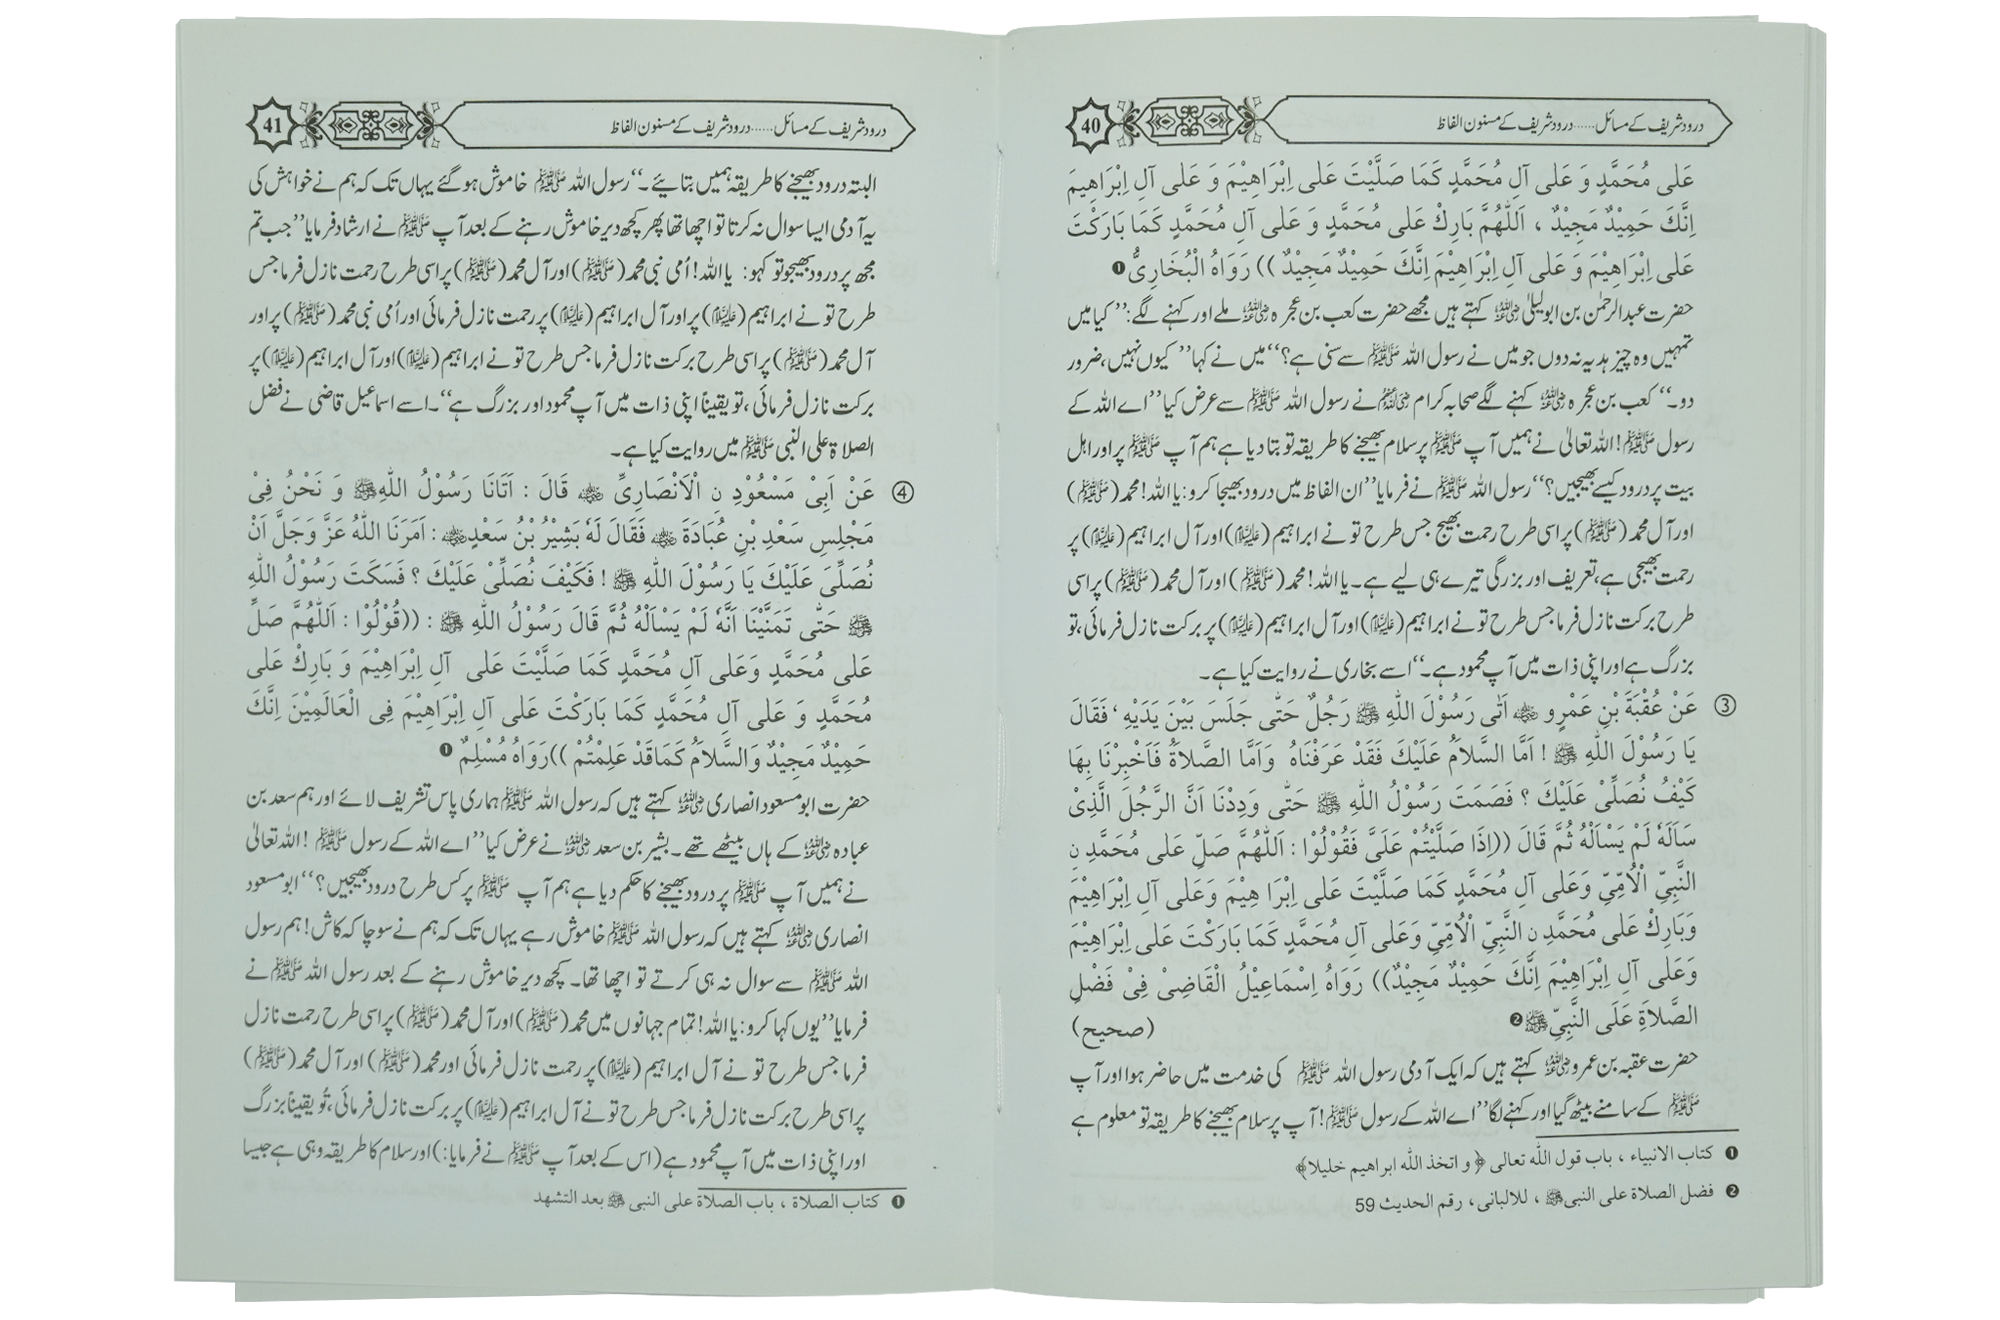 40
درود شریف کے مسائل......درود شریف کے مسنون الفاظ
عَلٰی مُحَمَّدٍ وَ عَلٰی آلِ مُحَمَّدٍ کَمَا صَلَّیْتَ عَلٰی اِبْرَاھِیْمَ وَ عَلٰی آلِ اِبْرَاھِیْمَ
اِنَّکَ حَمِیْدٌ مَجِیْدٌ ، اَللّٰھُمَّ بَارِکْ عَلٰی مُحَمَّدٍ وَ عَلٰی آلِ مُحَمَّدٍ کَمَا بَارَکْتَ
عَلٰی اِبْرَاھِیْمَ وَ عَلٰی آلِ اِبْرَاھِیْمَ اِنَّکَ حَمِیْدٌ مَجِیْدٌ )) رَوَاہُ الْبُخَارِیُّ ❶
حضرت عبدالرحمٰن بن ابو لیلیٰ رضی اللہ عنہ کہتے ہیں مجھے حضرت کعب بن عجرہ رضی اللہ عنہ ملے اور کہنے لگے:’’ کیا میں
تمہیں وہ چیز ہدیہ نہ دوں جو میں نے رسول اللہ ﷺ سے سنی ہے؟‘‘ میں نے کہا ’’ کیوں نہیں، ضرور
دو۔‘‘ کعب بن عجرہ رضی اللہ عنہ کہنے لگے صحابہ کرام رضی اللہ عنہم نے رسول اللہ ﷺ سے عرض کیا ’’اے اللہ کے
رسول ﷺ! اللہ تعالیٰ نے ہمیں آپ ﷺ پر سلام بھیجنے کا طریقہ تو بتا دیا ہے ہم آپ ﷺ پر اور اہل
بیت پر درود کیسے بھیجیں؟‘‘ رسول اللہ ﷺ نے فرمایا ’’ان الفاظ میں درود بھیجا کرو: یا اللہ! محمد (ﷺ)
اور آل محمد (ﷺ) پر اسی طرح رحمت بھیج جس طرح تو نے ابراہیم (علیہ السلام) اور آل ابراہیم (علیہ السلام) پر
رحمت بھیجی ہے، تعریف اور بزرگی تیرے ہی لیے ہے۔ یا اللہ! محمد (ﷺ) اور آل محمد (ﷺ) پر اسی
طرح برکت نازل فرما جس طرح تو نے ابراہیم (علیہ السلام) اور آل ابراہیم (علیہ السلام) پر برکت نازل فرمائی، تو
بزرگ ہے اور اپنی ذات میں آپ محمود ہے۔‘‘ اسے بخاری نے روایت کیا ہے۔
③ عَنْ عُقْبَۃَ بْنِ عَمْرٍو رضی اللہ عنہ اَتٰی رَسُوْلَ اللّٰہِ ﷺ رَجُلٌ حَتّٰی جَلَسَ بَیْنَ یَدَیْہِ ، فَقَالَ
یَا رَسُوْلَ اللّٰہِ ﷺ ! اَمَّا السَّلَامُ عَلَیْکَ فَقَدْ عَرَفْنَاہُ وَاَمَّا الصَّلَاۃُ فَاَخْبِرْنَا بِھَا
کَیْفُ نُصَلِّیْ عَلَیْکَ ؟ فَصَمَتَ رَسُوْلُ اللّٰہِ ﷺ حَتّٰی وَدِدْنَا اَنَّ الرَّجُلَ الَّذِیْ
سَاَلَہٗ لَمْ یَسْاَلْہُ ثُمَّ قَالَ ((اِذَا صَلَّیْتُمْ عَلَیَّ فَقُوْلُوْا : اَللّٰھُمَّ صَلِّ عَلٰی مُحَمَّدِ نِ
النَّبِیِّ الْاُمِّیِّ وَعَلٰی آلِ مُحَمَّدٍ کَمَا صَلَّیْتَ عَلٰی اِبْرَا ھِیْمَ وَعَلٰی آلِ اِبْرَاھِیْمَ
وَبَارِکْ عَلٰی مُحَمَّدِ نِ النَّبِیِّ الْاُمِّیِّ وَعَلٰی آلِ مُحَمَّدٍ کَمَا بَارَکْتَ عَلٰی اِبْرَاھِیْمَ
وَعَلٰی آلِ اِبْرَاھِیْمَ اِنَّکَ حَمِیْدٌ مَجِیْدٌ)) رَوَاہُ اِسْمَاعِیْلُ الْقَاضِیْ فِیْ فَضْلِ
الصَّلَاۃِ عَلَی النَّبِیِّ ﷺ ❷ (صحیح)
حضرت عقبہ بن عمرو رضی اللہ عنہ کہتے ہیں کہ ایک آدمی رسول اللہ ﷺ کی خدمت میں حاضر ہوا اور آپ
ﷺ کے سامنے بیٹھ گیا اور کہنے لگا ’’اے اللہ کے رسول ﷺ! آپ پر سلام بھیجنے کا طریقہ تو معلوم ہے
❶ کتاب الانبیاء ، باب قول اللّٰہ تعالی ﴿ و اتخذ اللّٰہ ابراھیم خلیلا﴾
❷ فضل الصلاۃ علی النبی ﷺ ، للالبانی، رقم الحدیث 59
41
درود شریف کے مسائل......درود شریف کے مسنون الفاظ
البتہ درود بھیجنے کا طریقہ ہمیں بتائیے۔‘‘ رسول اللہ ﷺ خاموش ہو گئے یہاں تک کہ ہم نے خواہش کی
یہ آدمی ایسا سوال نہ کرتا تو اچھا تھا پھر کچھ دیر خاموش رہنے کے بعد آپ ﷺ نے ارشاد فرمایا ’’جب تم
مجھ پر درود بھیجو تو کہو: یا اللہ! اُمی نبی محمد (ﷺ) اور آل محمد (ﷺ) پر اسی طرح رحمت نازل فرما جس
طرح تو نے ابراہیم (علیہ السلام) پر اور آل ابراہیم (علیہ السلام) پر رحمت نازل فرمائی اور اُمی نبی محمد (ﷺ) پر اور
آل محمد (ﷺ) پر اسی طرح برکت نازل فرما جس طرح تو نے ابراہیم (علیہ السلام) اور آل ابراہیم (علیہ السلام) پر
برکت نازل فرمائی، تو یقیناً اپنی ذات میں آپ محمود اور بزرگ ہے‘‘۔ اسے اسماعیل قاضی نے فضل
الصلاۃ علی النبی ﷺ میں روایت کیا ہے۔
④ عَنْ اَبِیْ مَسْعُوْدِ نِ الْاَنْصَارِیِّ رضی اللہ عنہ قَالَ : اَتَانَا رَسُوْلُ اللّٰہِ ﷺ وَ نَحْنُ فِیْ
مَجْلِسِ سَعْدِ بْنِ عُبَادَۃَ رضی اللہ عنہ فَقَالَ لَہٗ بَشِیْرُ بْنُ سَعْدٍ رضی اللہ عنہ : اَمَرَنَا اللّٰہُ عَزَّ وَجَلَّ اَنْ
نُصَلِّیَ عَلَیْکَ یَا رَسُوْلَ اللّٰہِ ﷺ ! فَکَیْفَ نُصَلِّیْ عَلَیْکَ ؟ فَسَکَتَ رَسُوْلُ اللّٰہِ
ﷺ حَتّٰی تَمَنَّیْنَا اَنَّہٗ لَمْ یَسْاَلْہُ ثُمَّ قَالَ رَسُوْلُ اللّٰہِ ﷺ : ((قُوْلُوْا : اَللّٰھُمَّ صَلِّ
عَلٰی مُحَمَّدٍ وَعَلٰی آلِ مُحَمَّدٍ کَمَا صَلَّیْتَ عَلٰی آلِ اِبْرَاھِیْمَ وَ بَارِکْ عَلٰی
مُحَمَّدٍ وَ عَلٰی آلِ مُحَمَّدٍ کَمَا بَارَکْتَ عَلٰی آلِ اِبْرَاھِیْمَ فِی الْعَالَمِیْنَ اِنَّکَ
حَمِیْدٌ مَجِیْدٌ وَالسَّلَامُ کَمَا قَدْ عَلِمْتُمْ ))رَوَاہُ مُسْلِمٌ ❶
حضرت ابو مسعود انصاری رضی اللہ عنہ کہتے ہیں کہ رسول اللہ ﷺ ہماری پاس تشریف لائے اور ہم سعد بن
عبادہ رضی اللہ عنہ کے ہاں بیٹھے تھے۔ بشیر بن سعد رضی اللہ عنہ نے عرض کیا ’’اے اللہ کے رسول ﷺ ! اللہ تعالیٰ
نے ہمیں آپ ﷺ پر درود بھیجنے کا حکم دیا ہے ہم آپ ﷺ پر کس طرح درود بھیجیں؟‘‘ ابو مسعود
انصاری رضی اللہ عنہ کہتے ہیں کہ رسول اللہ ﷺ خاموش رہے یہاں تک کہ ہم نے سوچا کہ کاش! ہم رسول
اللہ ﷺ سے سوال نہ ہی کرتے تو اچھا تھا۔ کچھ دیر خاموش رہنے کے بعد رسول اللہ ﷺ نے
فرمایا ’’یوں کہا کرو: یا اللہ! تمام جہانوں میں محمد (ﷺ) اور آل محمد (ﷺ) پر اسی طرح رحمت نازل
فرما جس طرح تو نے آل ابراہیم (علیہ السلام) پر رحمت نازل فرمائی اور محمد (ﷺ) اور آل محمد (ﷺ)
پر اسی طرح برکت نازل فرما جس طرح تو نے آل ابراہیم (علیہ السلام) پر برکت نازل فرمائی، تُو یقیناً بزرگ
اور اپنی ذات میں آپ محمود ہے (اس کے بعد آپ ﷺ نے فرمایا:) اور سلام کا طریقہ وہی ہے جیسا
❶ کتاب الصلاۃ ، باب الصلاۃ علی النبی ﷺ بعد التشھد